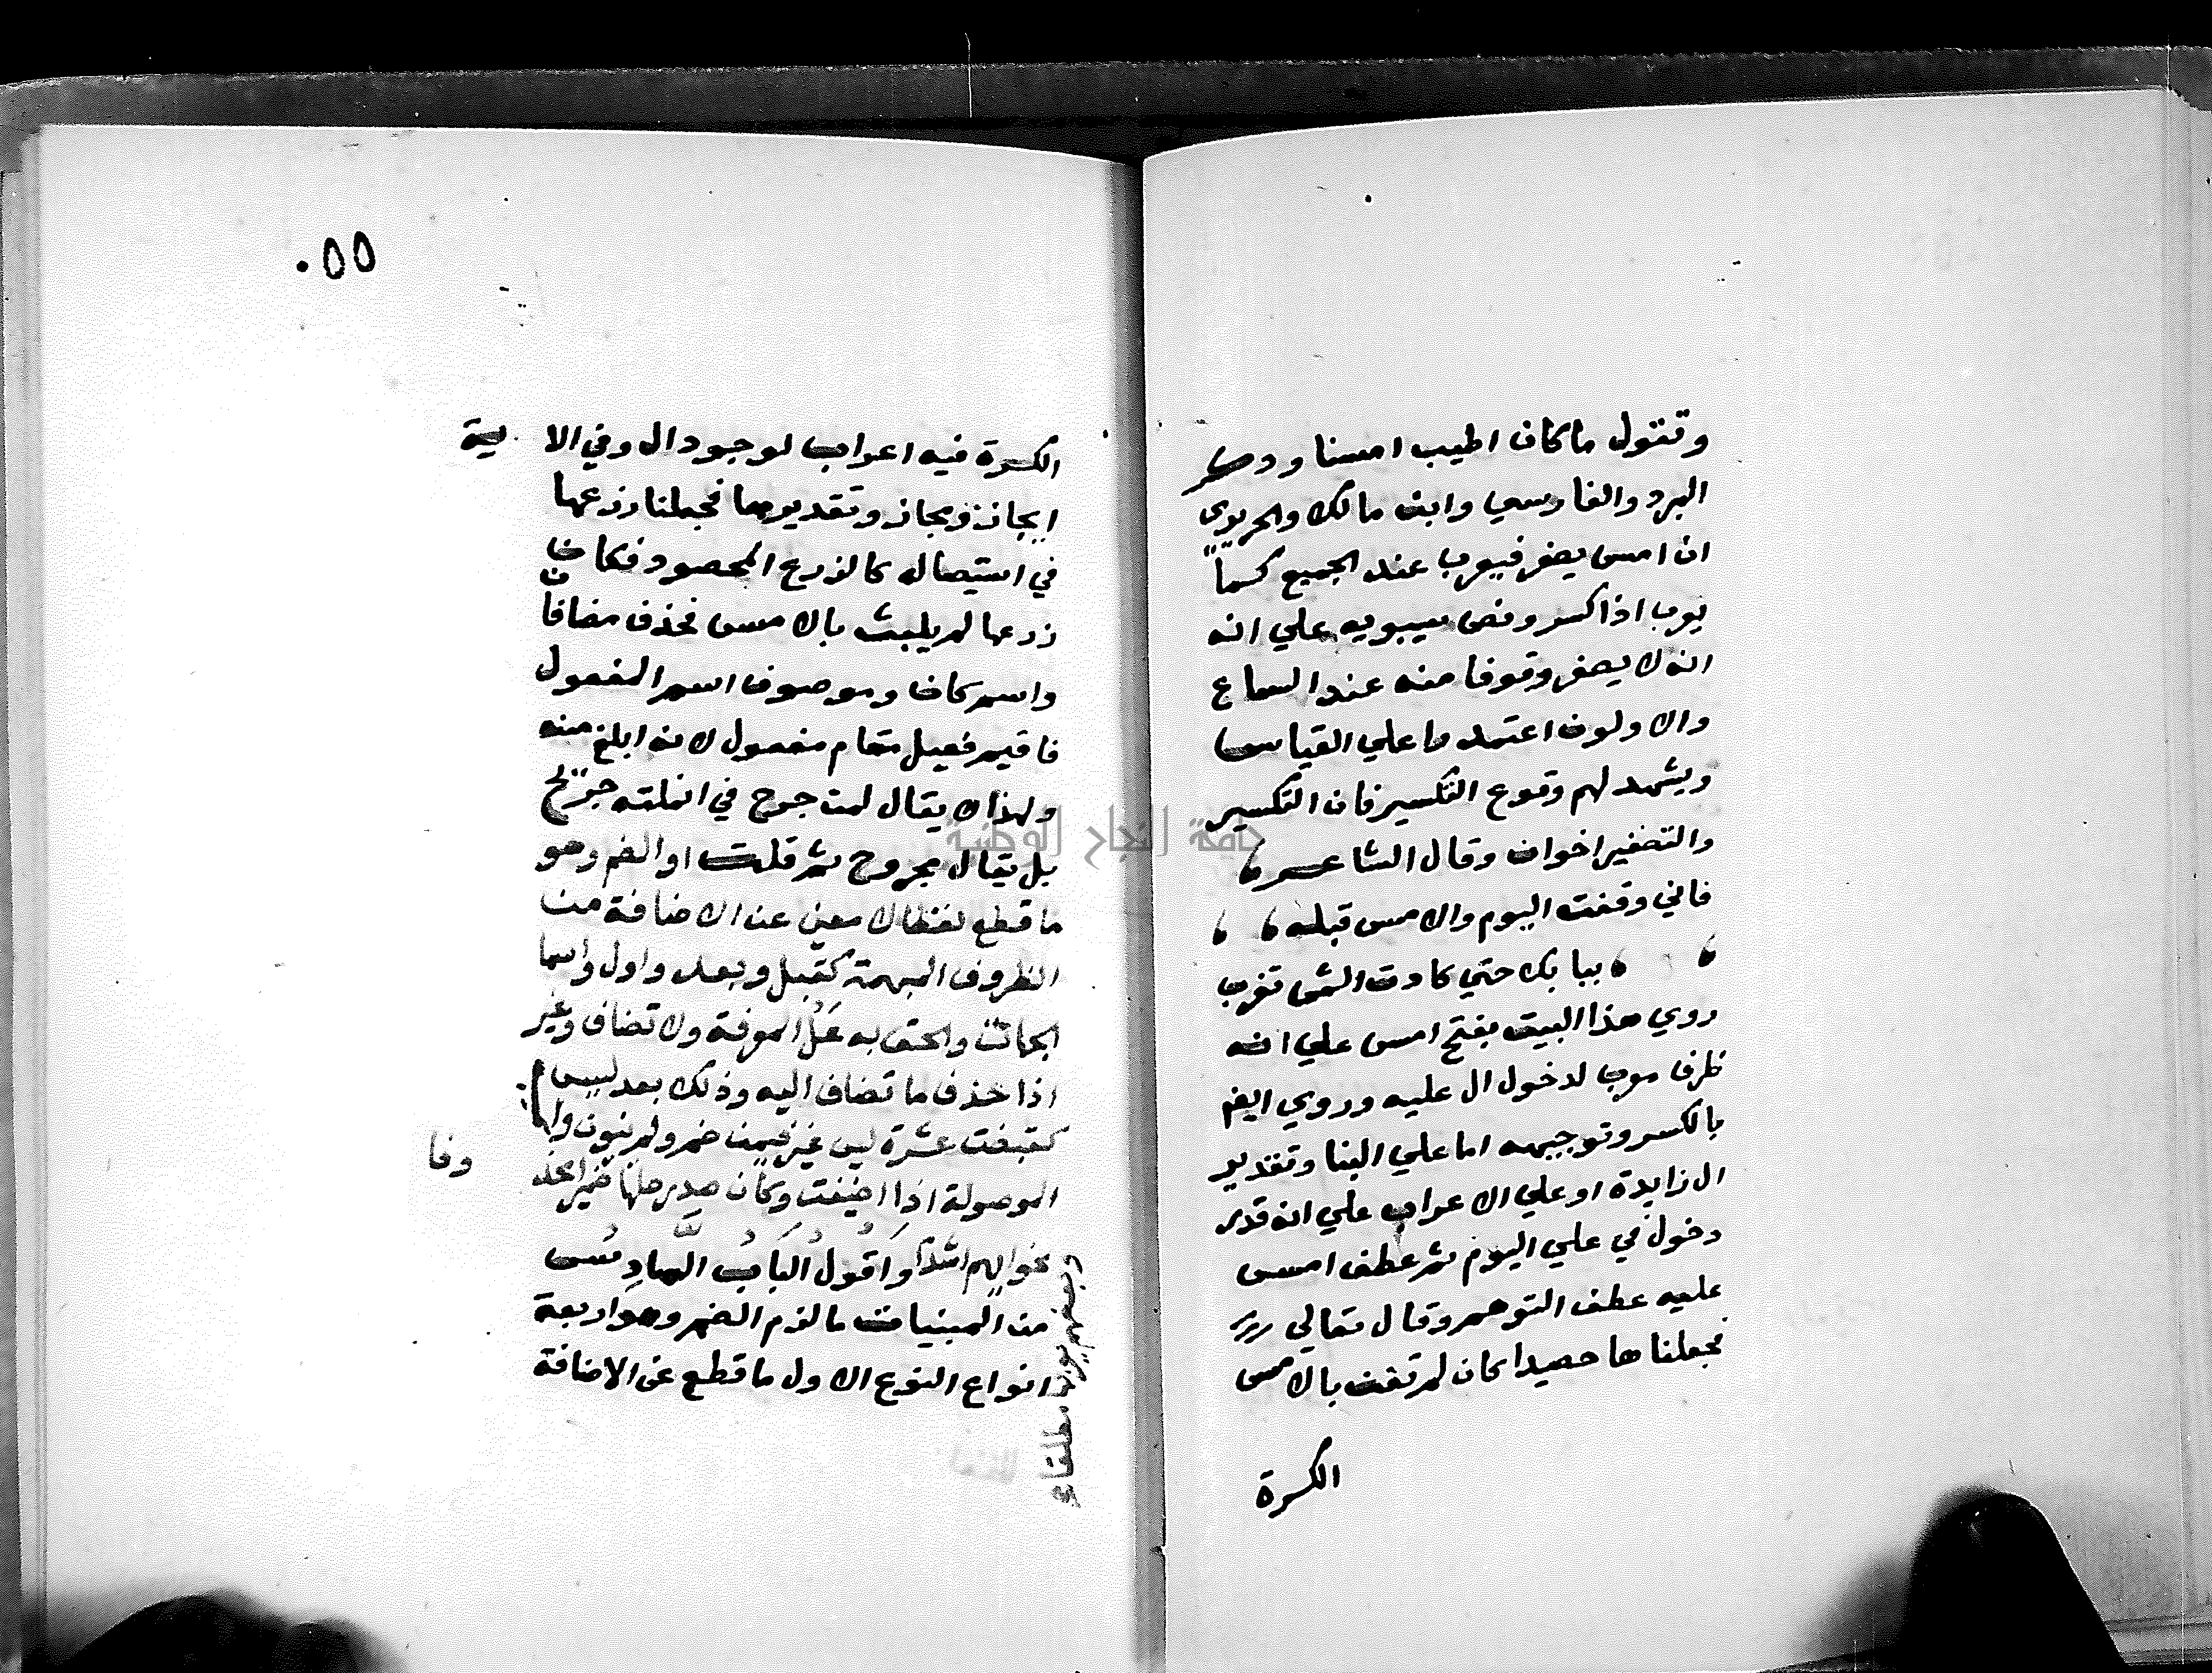 وتقول ما كان اطيب امسنا وذكر
المبرد والفارسي وابن مالك والحريري
ان امس يصغر فيعرب عند الجميع كما
يعرب اذا كسر ونص سيبويه علي انه
انه لا يصغر وقوفا منه عند السماع
والاولون اعتمدوا علي القياس
ويشهد لهم وقوع التكسير فان التكسير
والتصغير اخوان وقال الشاعر
فاني وقفت اليوم والامس قبله
ببابك حتي كادت الشمس تغرب
روي هذا البيت بفتح امس علي انه
ظرف معرب لدخول ال عليه وروي ايضا
بالكسر وتوجيهه اما علي البنا وتقدير
ال زايدة او علي الاعراب علي انه قدر
دخول في علي اليوم ثم عطف امس
عليه عطف التوهم وقال تعالي
فجعلناها حصيدا كان لم تغن بالامس
الكسرة
٥٥٠
الكسرة فيه اعراب لوجود ال وفي الاية
ايجاز ومجاز وتقديرهما فجعلنا زرعها
في استيصاله كالزرع المحصود فكان
زرعها لم يلبث بالامس فحذف مضافا
واسم كان وموصوف اسم المفعول
فاقيم فعيل مقام مفعول لانه ابلغ منه
ولهذا لا يقال لمن جرح في انملته جريح
بل يقال مجروح ثم قلت او الضم وهو
ما قطع لفظا لا معني عن الاضافة من
الظروف المبهمة كقبل وبعد واول واسما
الجهات والحق به عل المعرفة ولا تضاف وغير
اذا حذف ما تضاف اليه وذلك بعد ليس
كقبضت عشرة ليس غير فيمن ضم ولم ينون واي
الموصولة اذا اضيفت وكان صدر صلتها ضميرا محذ
وفا
نحو ايهم اشد واقول الباب السادس
من المبنيات ما لزم الضم وهو اربعة
انواع النوع الاول ما قطع عن الاضافة
وبعضهم يعربها مطلقا